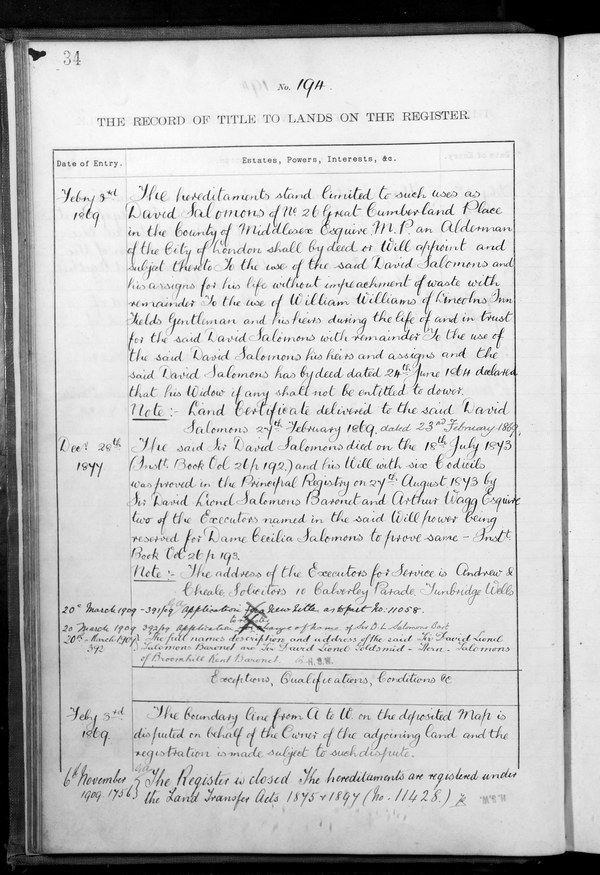 34
No. 194.
THE RECORD OF TITLE TO LANDS ON THE REGISTER.
Date of Entry.
Estates, Powers, Interests, &c.
Febry 3rd 1869
The hereditaments stand limited to such uses as
David Salomons of No. 26 Great Cumberland Place
in the County of Middlesex Esquire M.P. an Alderman
of the City of London shall by deed or Will appoint and
subject thereto To the use of the said David Salomons and
his assigns for his life without impeachment of waste with
remainder To the use of William Williams of Lincolns Inn
Fields Gentleman and his heirs during the life of and in trust
for the said David Salomons with remainder To the use of
the said David Salomons his heirs and assigns and the
said David Salomons has by deed dated 24th June 1864 declared
that his Widow if any shall not be entitled to dower.
Note :- Land Certificate delivered to the said David
Salomons 27th February 1869. dated 23rd February 1869.
Decr. 28th 1877
The said Sir David Salomons died on the 18th July 1873
(Inst. Book Vol 26 p 192.) and his Will with six Codicils
was proved in the Principal Registry on 27th August 1873 by
Sir David Lionel Salomons Baronet and Arthur Wagg Esquire
two of the Executors named in the said Will power being
reserved for Dame Cecilia Salomons to prove same - Inst.
Book Vol 26 p 193.
Note :- The address of the Executors for Service is Andrew &
Cheale Solicitors 10 Calverley Parade, Tunbridge Wells
20th March 1909 - 391/09 Application for New title as to part No: 11058.
20 March 1909 392/09 Application change of name of Sir D. L. Salomons Bart
20th March 1909 392
The full names description and address of the said Sir David Lionel
Salomons Baronet are Sir David Lionel Goldsmid - Stern - Salomons
of Broomhill Kent Baronet. H.S.W.
Exceptions, Qualifications, Conditions &c
Feby 3rd 1869
The boundary line from A to W. on the deposited Map is
disputed on behalf of the Owner of the adjoining land and the
registration is made subject to such dispute.
6th November 1909. 1756
The Register is closed The hereditaments are registered under
the Land Transfer Acts 1875 & 1897 (No. 11428.)